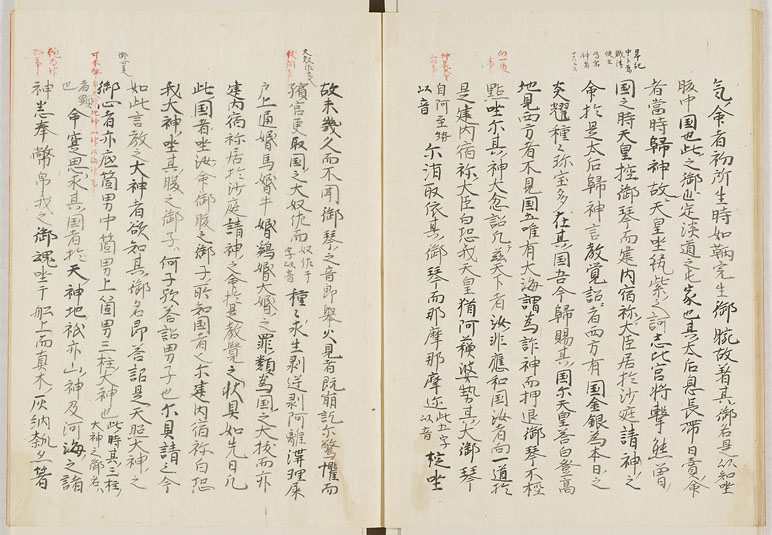 氣命者初所生時如鞆宍生御腕故著其御名是以知坐
腹中国也此之御世定淡道之屯家也其太后息長帯日賣命
者當時歸神故天皇坐筑紫之訶志比宮将撃熊曽
国之時天皇控御琴而建内宿祢大臣居於沙庭請神之
命於是太后歸神言教覚詔者西方有国金銀為本日之
炎耀種々珍宝多在其国吾今歸賜其国尓天皇答白登高
地見西方者不見国土唯有大海謂為詐神而押退御琴不控
黙坐尓其神大忿詔凡茲天下者汝非應知国汝者向一道於
是建内宿祢大臣白恐我天皇猶阿蘇婆勢其大御琴
自阿至勢以音尓消取依其御琴而那摩那摩迩此五字以音控坐
故未幾久而不聞御琴之音即擧火見者既崩訖尓驚懼而
殯宮更取国之大奴佐而奴佐二字以音種々求生剥逆剥阿離溝埋屎
戸上通婚馬婚牛婚鶏婚犬婚之罪類為国之大祓而亦
建内宿祢居於沙庭請神之命於是教覺之状具如先日凡
此国者坐汝命御腹之御子所知国者也尓建内宿祢白恐
我大神坐其腹之御子何子歟答詔男子也尓具請之今
如此言教之大神者欲知其御名即答詔是天照大神之
御心者亦底箇男中箇男上箇男三柱大神也此時其三柱大神之御名
者顕也今寔思求其国者於天神地祇亦山神及河海之諸
神悉奉幣帛我之御魂坐于船上而真木灰納瓠亦箸